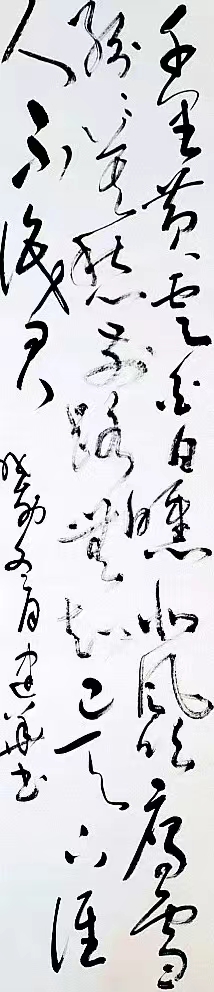 千里黄云白日曛北风吹雁雪
纷纷莫愁前路无知己天下谁
人不识君
月建华书